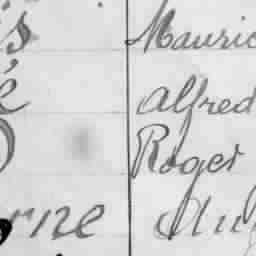 is Mauric
é Alfred
Roger
rne Au